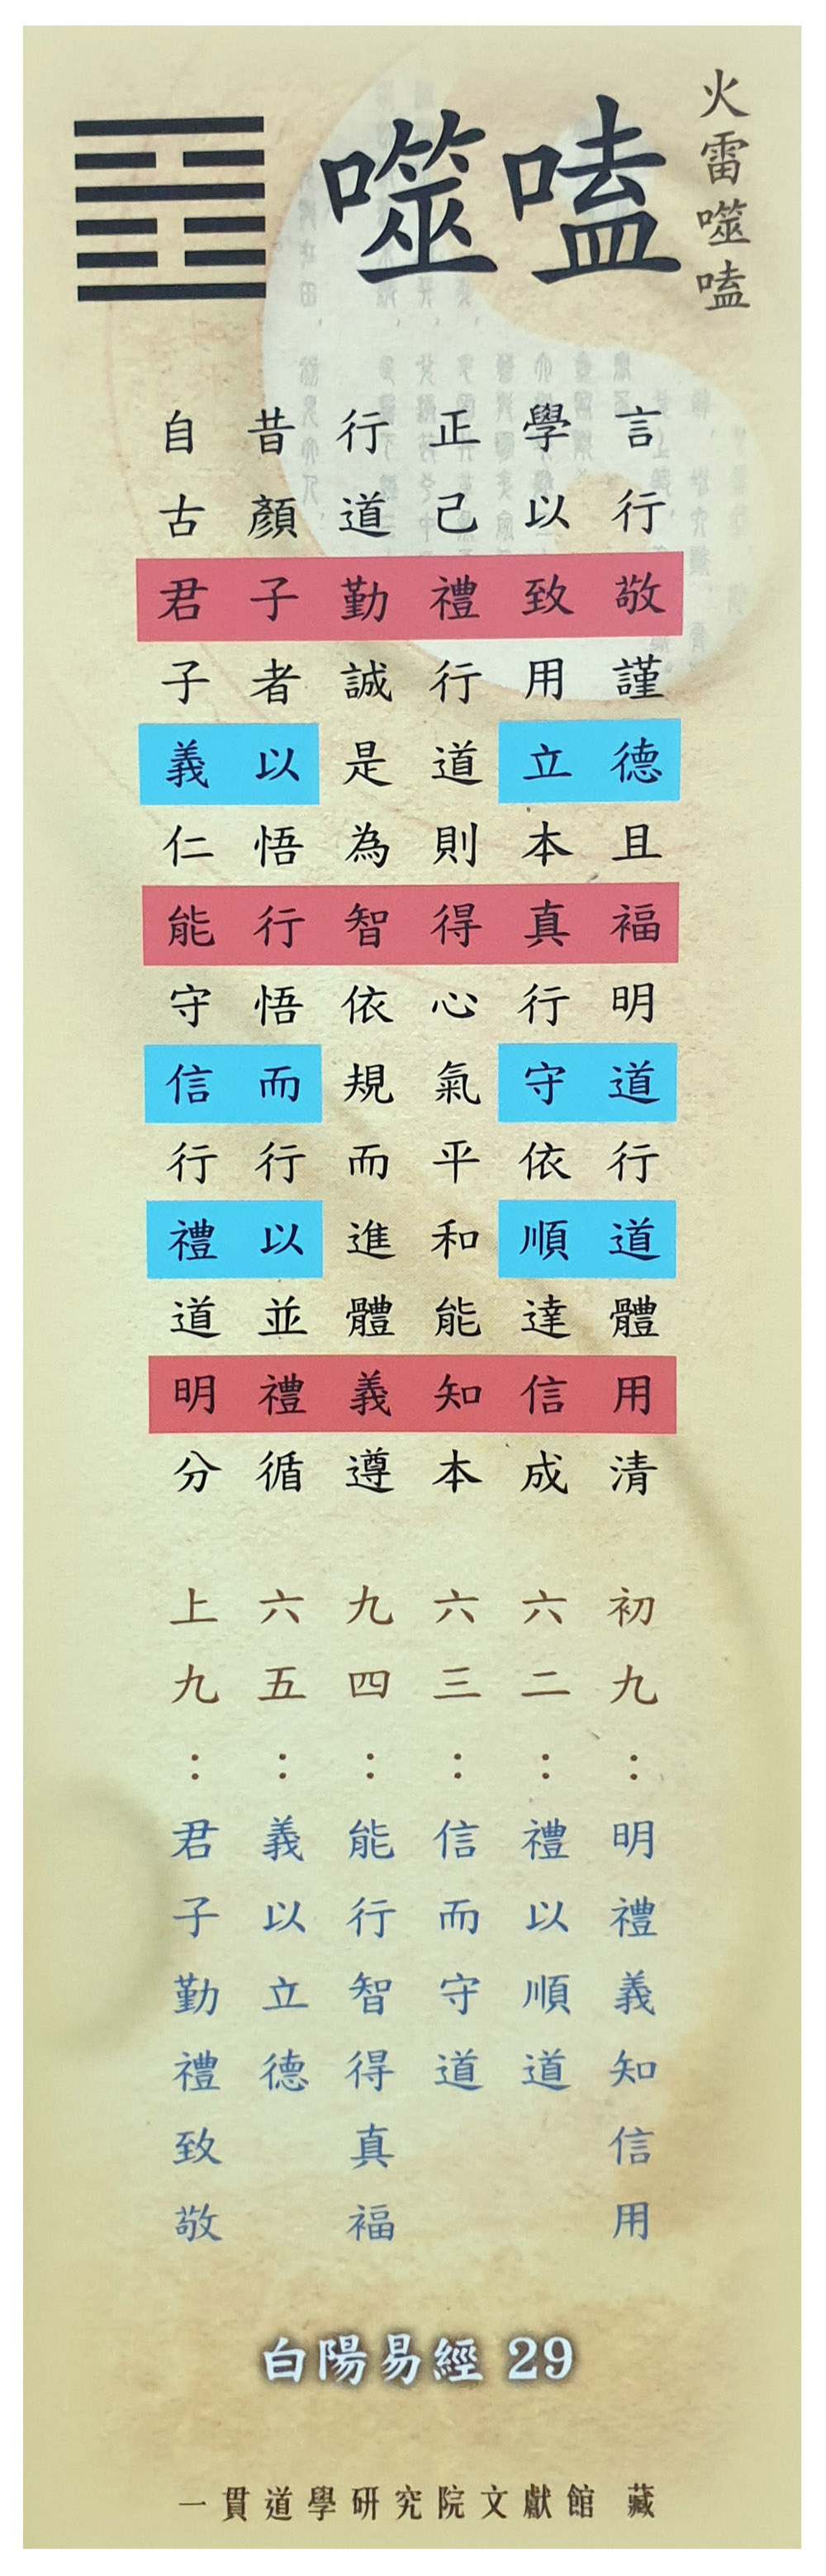 火雷噬嗑
噬嗑
言行敬謹德且褔明道行道體用清
學以致用立本真行守依順達信成
正己禮行道則得心氣平和能知本
行道勤誠是為智依規而進體義遵
昔顏子者以悟行悟而行以並禮循
自古君子義仁能守信行禮道明分
初九：明禮義知信用
六二：禮以順道
六三：信而守道
九四：能行智得真褔
六五：義以立德
上九：君子勤禮致敬
白陽易經 29
一貫道學研究院文獻館 藏